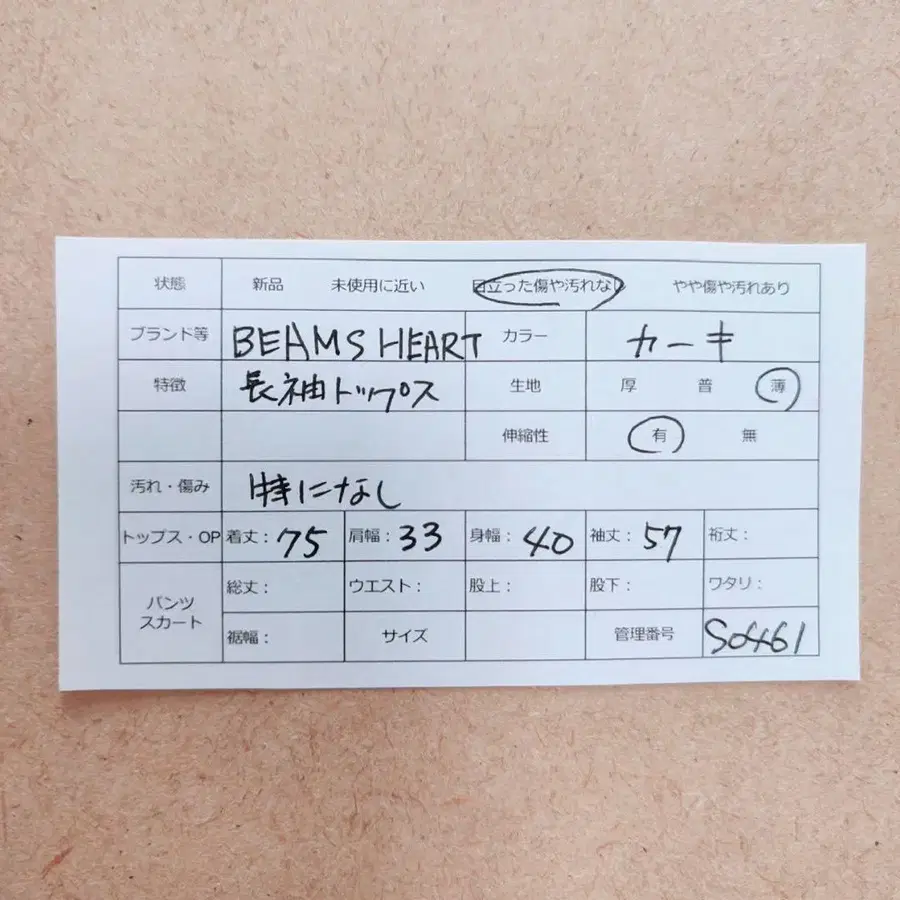 状態 新品 未使用に近い 目立った傷や汚れなし やや傷や汚れあり
ブランド等 BEAMS HEART カラー カーキ
特徴 長袖トップス 生地 厚 普 薄
伸縮性 有 無
汚れ・傷み 特になし
トップス・OP 着丈: 75 肩幅: 33 身幅: 40 袖丈: 57 裄丈:
パンツ スカート 総丈: ウエスト: 股上: 股下: ワタリ:
裾幅: サイズ 管理番号 S0461